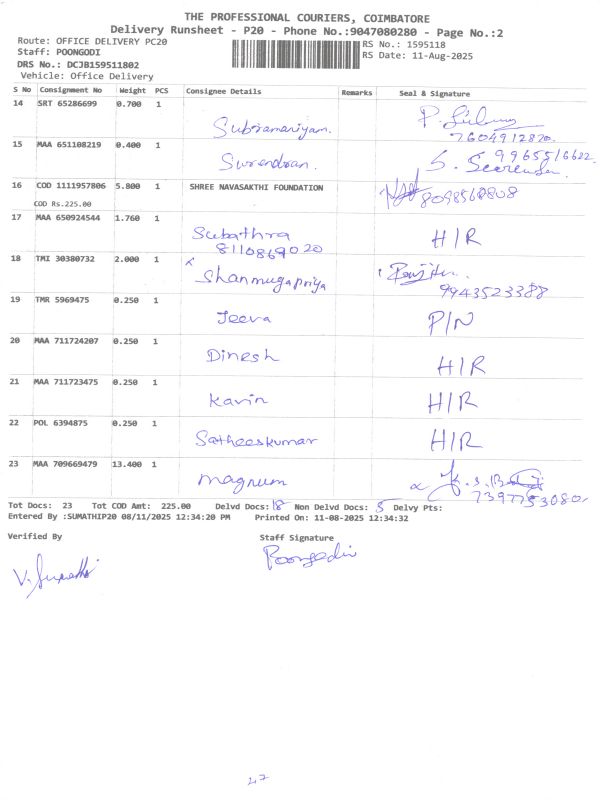 THE PROFESSIONAL COURIERS, COIMBATORE
Delivery Runsheet - P20 - Phone No.:9047080280 - Page No.:2
Route: OFFICE DELIVERY PC20 RS No.: 1595118
Staff: POONGODI RS Date: 11-Aug-2025
DRS No.: DCJB159511802
Vehicle: Office Delivery
S No Consignment No Weight PCS Consignee Details Remarks Seal & Signature
14 SRT 65286699 0.700 1 Subramaniyam. 7604912820.
15 MAA 651108219 0.400 1 Surendran. S. 9965516622.
16 COD 1111957806 5.800 1 SHREE NAVASAKTHI FOUNDATION 8098568808
COD Rs.225.00
17 MAA 650924544 1.760 1 Subathra H/R
8110869020
18 TMI 30380732 2.000 1 Shanmugapriya 9943523388
19 TMR 5969475 0.250 1 Jeeva P/N
20 MAA 711724207 0.250 1 Dinesh H/R
21 MAA 711723475 0.250 1 Kavin H/R
22 POL 6394875 0.250 1 Satheeskumar H/R
23 MAA 709669479 13.400 1 Magnum 7397753080.
Tot Docs: 23 Tot COD Amt: 225.00 Delvd Docs: 18 Non Delvd Docs: 5 Delvy Pts:
Entered By :SUMATHIP20 08/11/2025 12:34:20 PM Printed On: 11-08-2025 12:34:32
Verified By Staff Signature
Poongodi
V. Sumathi
47